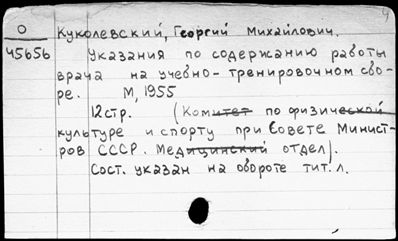 9
О
45656
Куколевский, Георгий Михайлович.
Указания по содержанию работы
врача на учебно-тренировочном сбо-
ре. М, 1955
12стр. (Комитет по физической
культуре и спорту при Совете Минист-
ров СССР. Медицинский отдел).
Сост. указан на обороте тит. л.